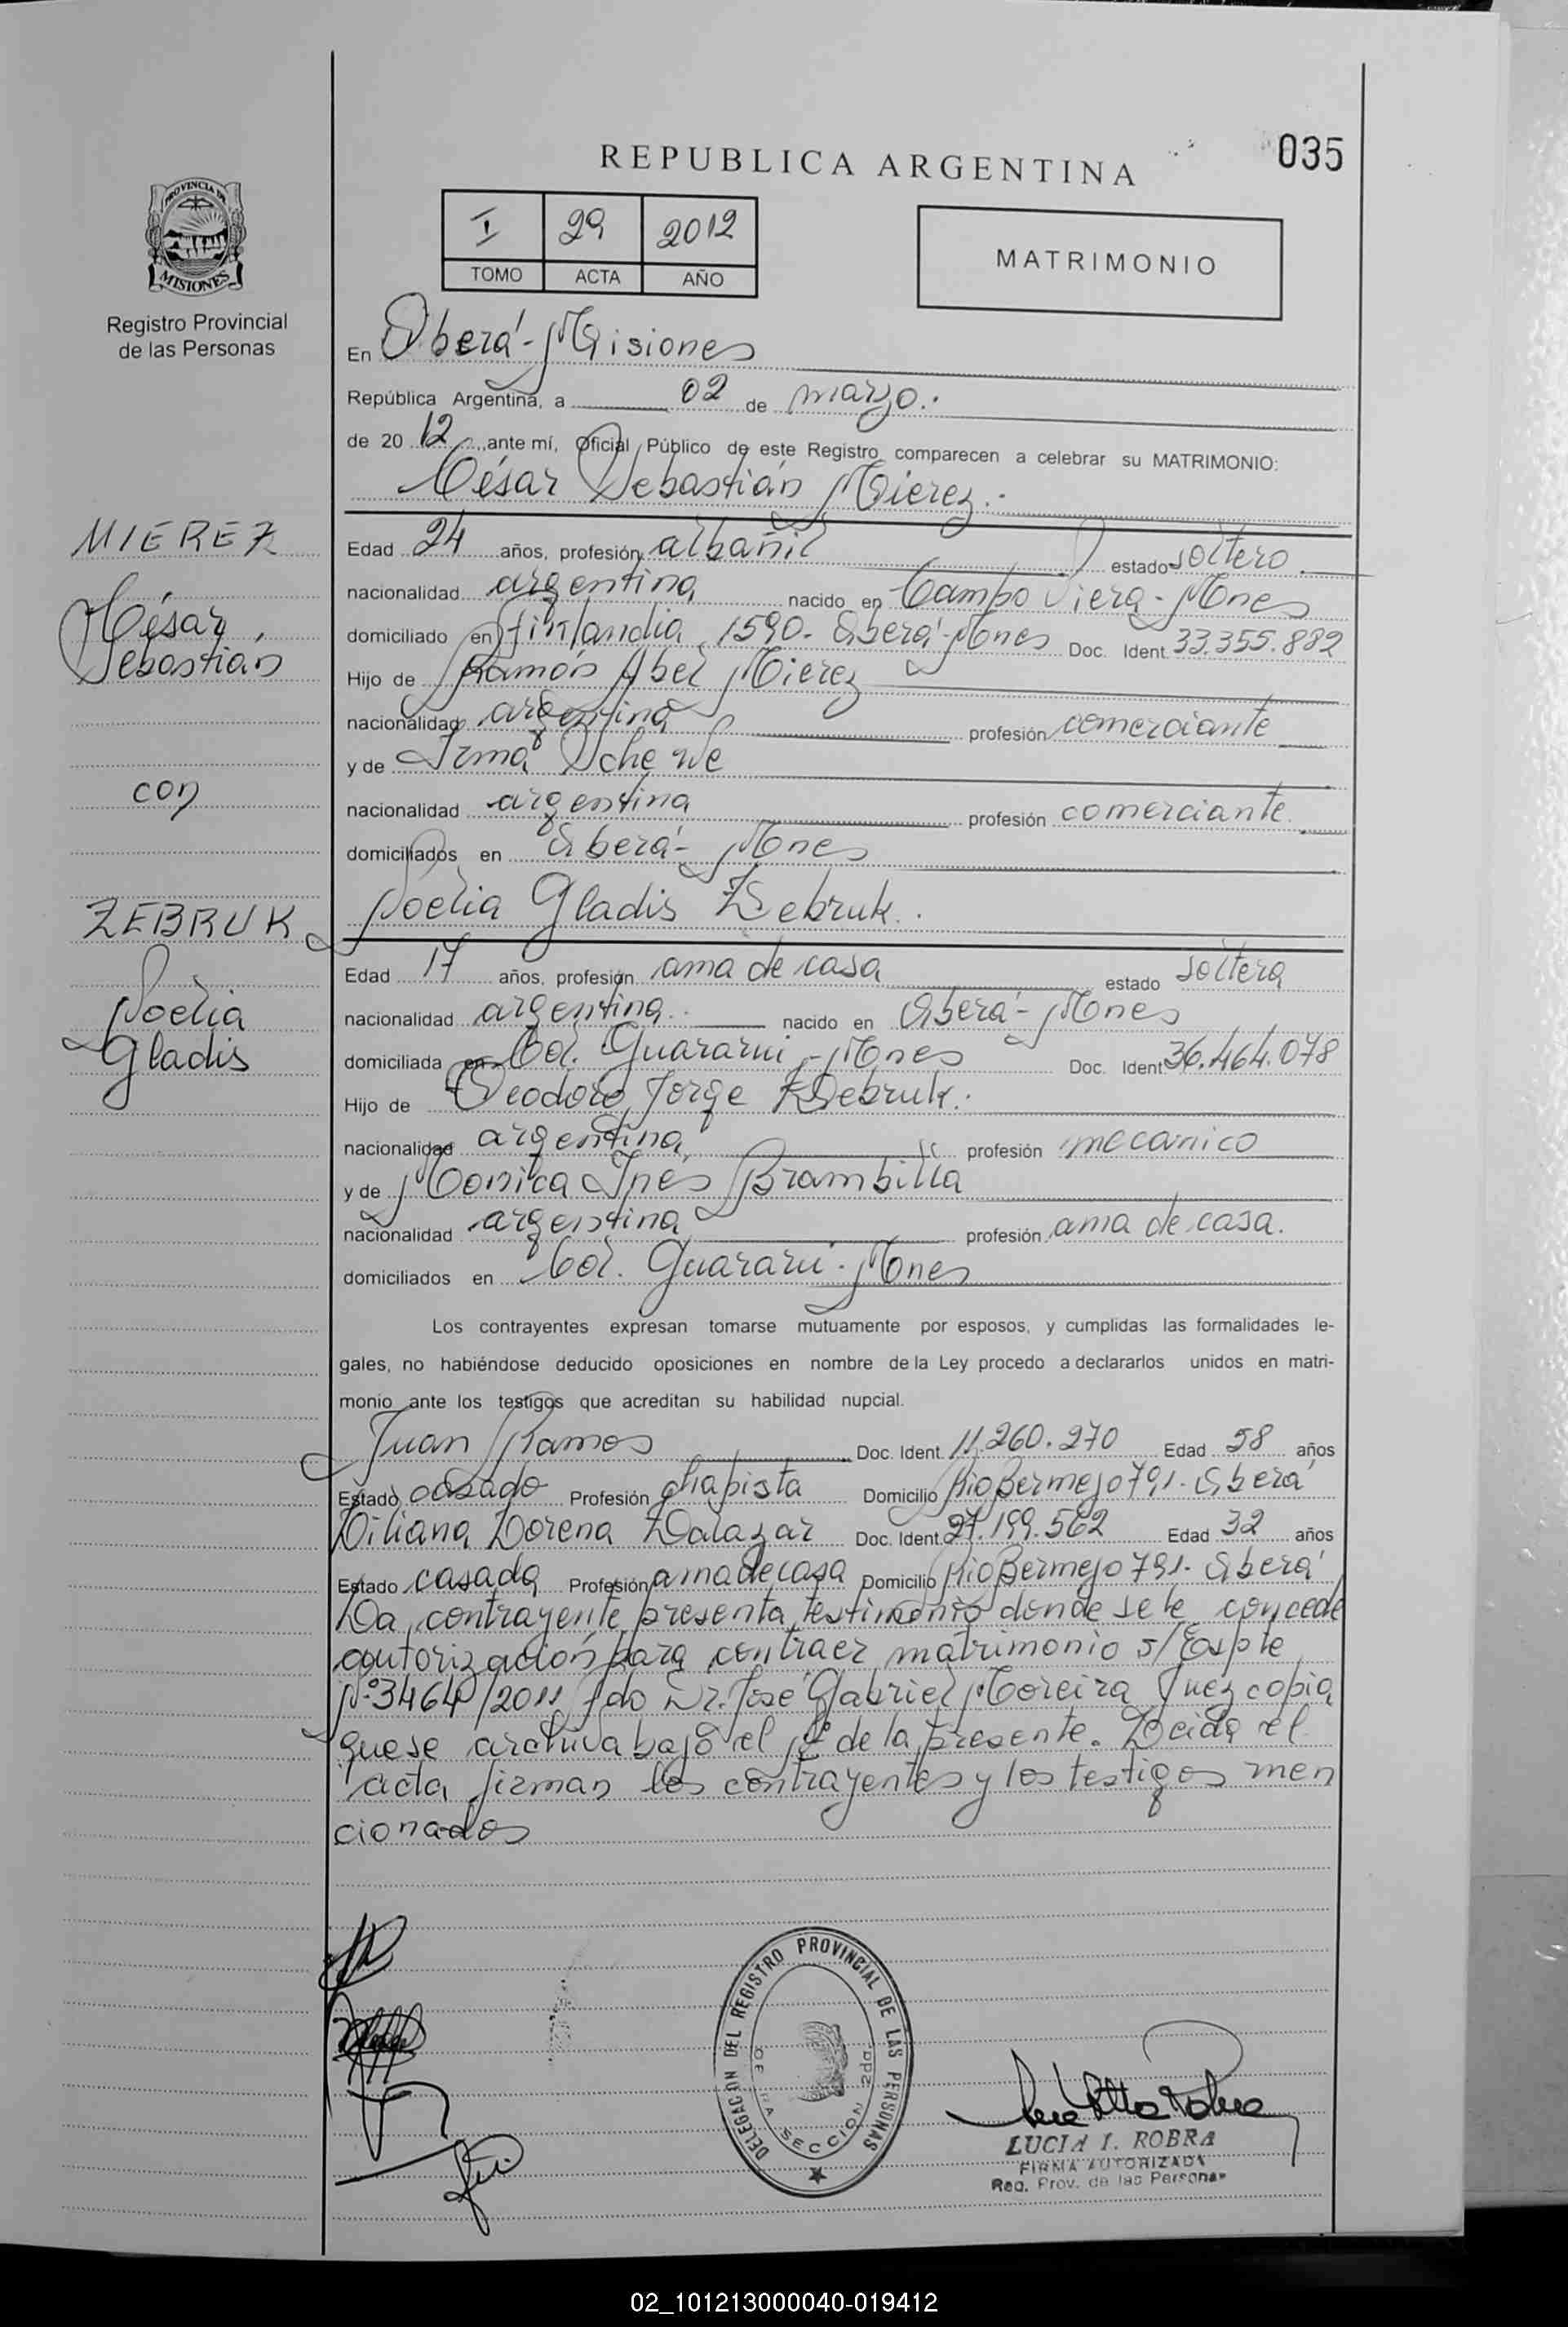 REPUBLICA ARGENTINA
035
PROVINCIA DE
MISIONES
Registro Provincial
de las Personas
I 29 2012
TOMO ACTA AÑO
MATRIMONIO
En Oberá - Misiones
República Argentina, a 02 de marzo.
de 20 12, ante mí, Oficial Público de este Registro comparecen a celebrar su MATRIMONIO:
César Sebastián Mierez.
MIEREZ
César
Sebastián
con
ZEBRUK
Noelia
Gladis
Edad 24 años, profesión albañil estado soltero.
nacionalidad argentina nacido en Campo Viera - Mnes
domiciliado en Finlandia 1590 - Oberá - Mnes Doc. Ident. 33.355.882
Hijo de Ramón Abel Mierez
nacionalidad argentina profesión comerciante
y de Irma
nacionalidad argentina profesión comerciante.
domiciliados en Oberá - Mnes
Noelia Gladis Zebruk.
Edad 17 años, profesión ama de casa estado soltera
nacionalidad argentina. nacido en Oberá - Mnes
domiciliada en Col. Guararni - Mnes Doc. Ident 36.464.078
Hijo de Teodoro Jorge Zebruk.
nacionalidad argentina profesión mecanico
y de Monica Inés Brambilla
nacionalidad argentina profesión ama de casa.
domiciliados en Col. Guarani - Mnes
Los contrayentes expresan tomarse mutuamente por esposos, y cumplidas las formalidades le-
gales, no habiéndose deducido oposiciones en nombre de la Ley procedo a declararlos unidos en matri-
monio ante los testigos que acreditan su habilidad nupcial.
Juan Ramos Doc. Ident. 11.260.270 Edad 58 años
Estado casado Profesión chapista Domicilio Rio Bermejo 791 - Oberá
Liliana Lorena Dalazar Doc. Ident. 27.199.562 Edad 32 años
Estado casada Profesión ama de casa Domicilio Rio Bermejo 791 - Oberá
La contrayente presenta testimonio donde se le concede
autorización para contraer matrimonio s/ Expte
Nº 3464/2011 fdo Dr. José Gabriel Moreira Juez copia
que se archiva bajo el Nº de la presente. Leida el
acta firman los contrayentes y los testigos men
cionados
DELEGACION DEL REGISTRO PROVINCIAL DE LAS PERSONAS
SECCION 2da
LUCIA I. ROBRA
FIRMA AUTORIZADA
Reg. Prov. de las Personas
02_101213000040-019412